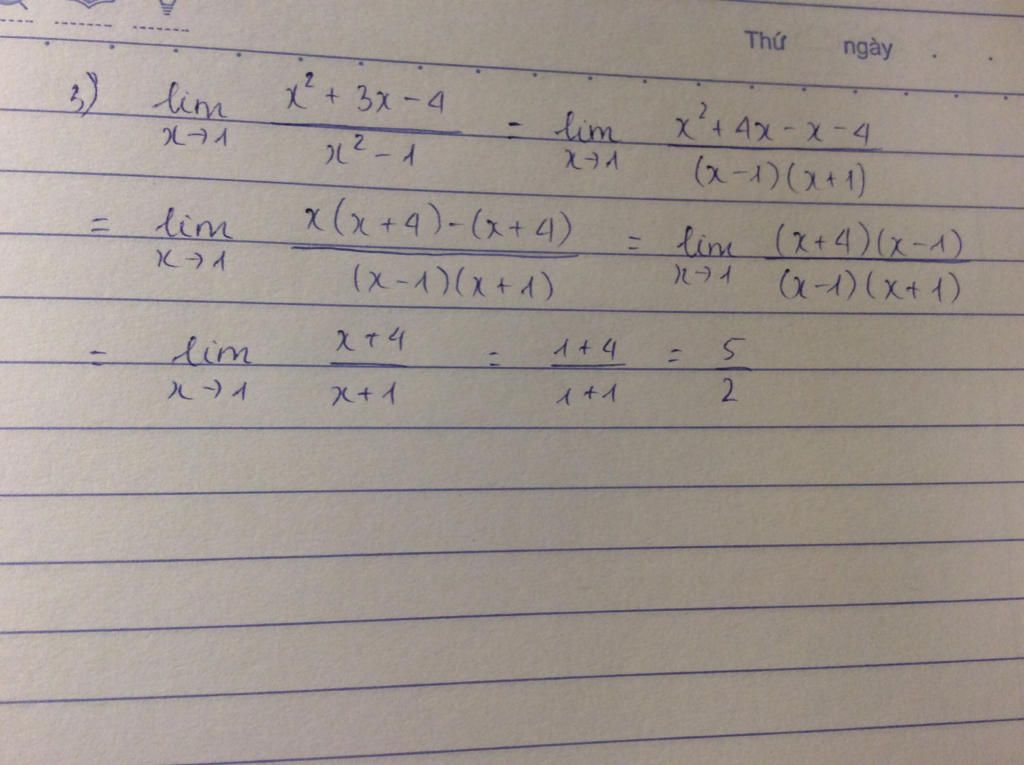 Thứ ngày
3) lim x→1 (x² + 3x - 4)/(x² - 1) = lim x→1 (x² + 4x - x - 4)/((x-1)(x+1))
= lim x→1 (x(x+4)-(x+4))/((x-1)(x+1)) = lim x→1 ((x+4)(x-1))/((x-1)(x+1))
= lim x→1 (x+4)/(x+1) = (1+4)/(1+1) = 5/2